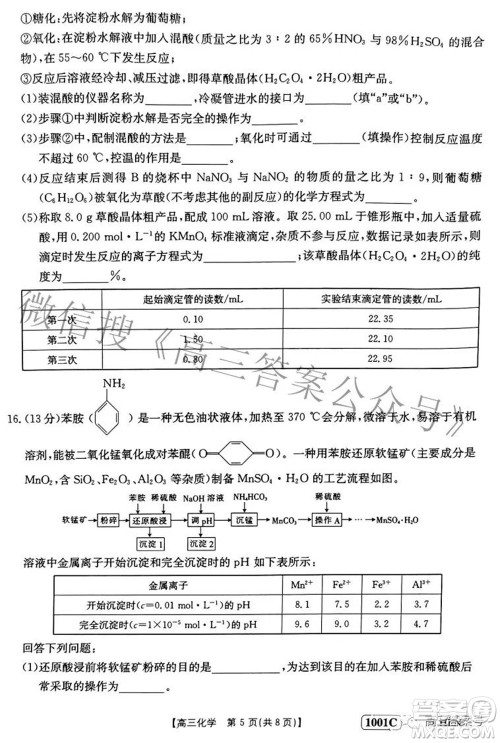 ①糖化：先将淀粉水解为葡萄糖；
②氧化：在淀粉水解液中加入混酸(质量之比为 3∶2 的 65%HNO₃ 与 98%H₂SO₄ 的混合
物)，在 55～60 ℃下反应；
③反应后溶液经冷却、减压过滤，即得草酸晶体(H₂C₂O₄·2H₂O)粗产品。
(1)装混酸的仪器名称为______，冷凝管进水的接口为______(填“a”或“b”)。
(2)步骤①中判断淀粉水解是否完全的操作为______。
(3)步骤②中配制混酸的方法是______；氧化时可通过______(填操作)控制反应温度
不超过 60 ℃，控温的作用是______。
(4)反应结束后测得 B 的烧杯中 NaNO₃ 与 NaNO₂ 的物质的量之比为 1∶9，则葡萄糖
(C₆H₁₂O₆)被氧化为草酸(不考虑其他副反应)的化学方程式为______。
(5)称取 8.0 g 草酸晶体粗产品，配成 100 mL 溶液。取 25.00 mL 于锥形瓶中，加入适量硫
酸，用 0.200 mol·L⁻¹ 的 KMnO₄ 标准液滴定，杂质不参与反应，数据记录如下表所示，则
滴定时发生反应的离子方程式为______，粗产品的纯度为______%。
起始滴定管的读数/mL 实验结束滴定管的读数/mL
第一次 0.10 22.35
第二次 1.50 22.10
第三次 0.80 22.95
微信搜《高三答案公众号》
NH₂
16.(13 分)苯胺()是一种无色油状液体，加热至 370 ℃会分解，微溶于水，易溶于有机
溶剂，能被二氧化锰氧化成对苯醌(O O)。一种由软锰矿(主要成分是
MnO₂，含 SiO₂、Fe₂O₃、Al₂O₃ 等杂质)制备 MnSO₄·H₂O 的工艺流程如图：
苯胺 稀硫酸 NaOH溶液 NH₄HCO₃ 稀硫酸
软锰矿 粉碎 还原酸浸 调 pH 沉锰 MnCO₃ 操作 A MnSO₄·H₂O
沉淀1 沉淀2
溶液中金属离子开始沉淀和完全沉淀时的 pH 如下表所示：
金属离子 Mn²⁺ Fe²⁺ Fe³⁺ Al³⁺
开始沉淀时(c=0.01 mol·L⁻¹)的 pH 8.1 7.5 2.2 3.7
完全沉淀时(c=1×10⁻⁵ mol·L⁻¹)的 pH 9.6 9.0 3.2 4.7
回答下列问题：
(1)还原酸浸前将软锰矿粉碎的目的是______，为达到该目的，还可采取的措施为
______。
【高三化学 第 5 页(共 8 页)】
1001C